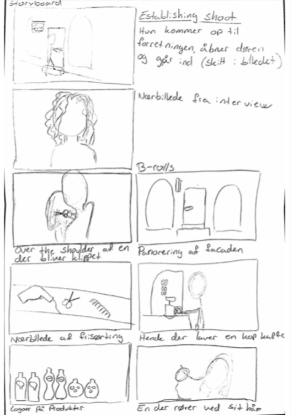 Storyboard
Establishing shoot
Hun kommer op til
forretningen, åbner døren
og går ind (skilt i billedet)
Nærbillede fra interview
B-rolls
Over the shoulder af en
der bliver klippet
Panorering af facaden
Nærbillede af frisørting
Hende der laver en kop kaffe
Logoer på Produkter
En der rører ved sit hår